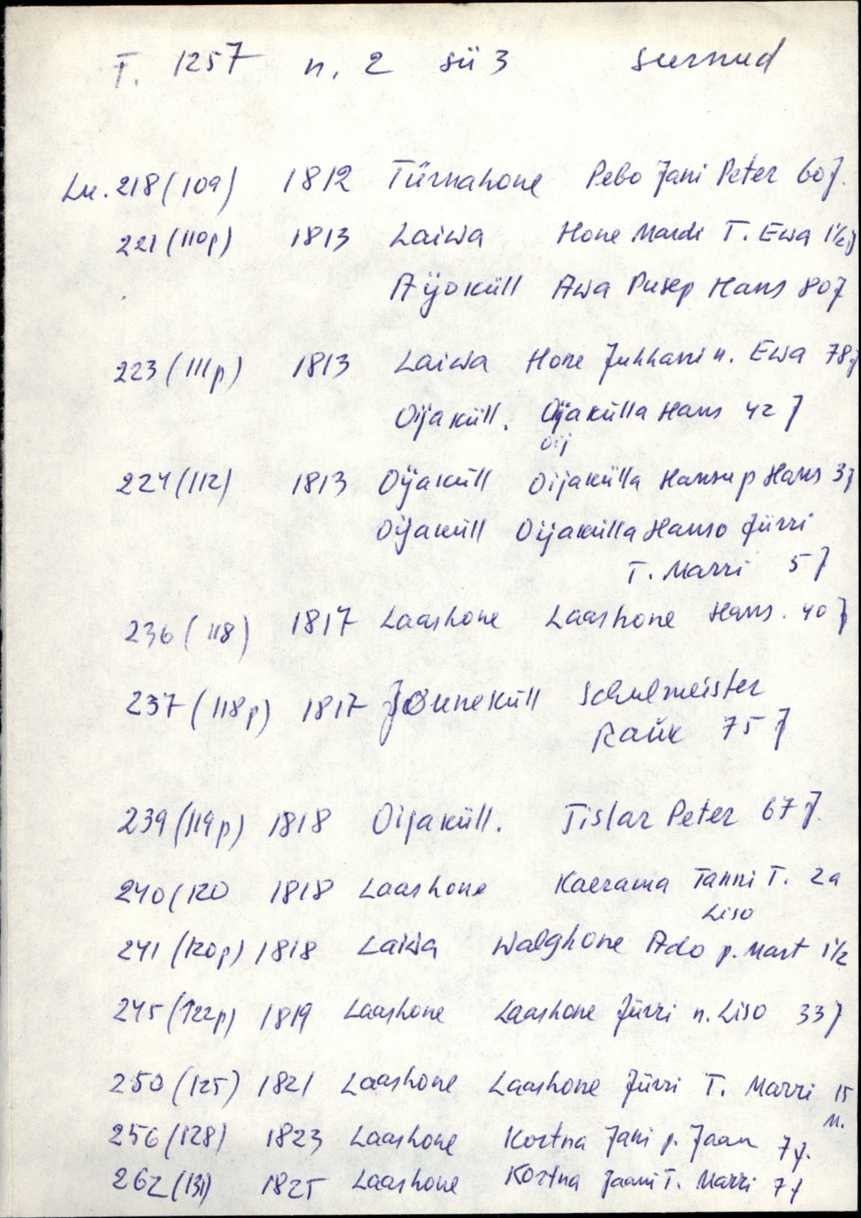 T. 1257 n. 2 sü 3 surnud
Lu. 218 (109) 1812 Türnahone Pebo Jani Peter 60 J.
221 (110p) 1813 Laiwa Hone Mardi T. Ewa 1½ J
Aÿoküll Awa Pusep Hans 80 J
223 (111p) 1813 Laiwa Hone Juhhani n. Ewa 78 J
Oijaküll. Oijakülla Hans 42 J
Oij
224 (112) 1813 Oÿaküll Oijakülla Hansu p Hans 3 J
Oijaküll Oijakülla Hanso Jürri
T. Marri 5 J
236 (118) 1817 Laashone Laashone Hans. 40 J
237 (118p) 1817 Jõuneküll Schulmeister
Rauk 75 J
239 (119p) 1818 Oijaküll. Tislar Peter 67 J.
240 (120 1818 Laashone Kaerama Tanni T. 2a
Liso
241 (120p) 1818 Laiwa Walghone Ado p. Mart 1½
245 (122p) 1819 Laashone Laashone Jürri n. Liso 33 J
250 (125) 1821 Laashone Laashone Jürri T. Marri 15
M.
256 (128) 1823 Laashone Kortna Jani p. Jaan 7 J.
262 (131) 1825 Laashone Kortna Jaani T. Marri 7 J